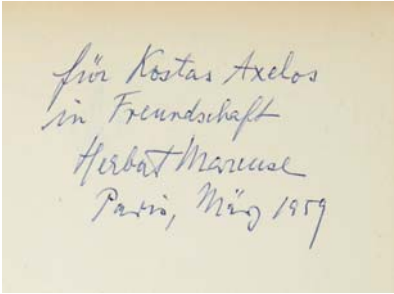 für Kostas Axelos
in Freundschaft
Herbert Marcuse
Paris, März 1959